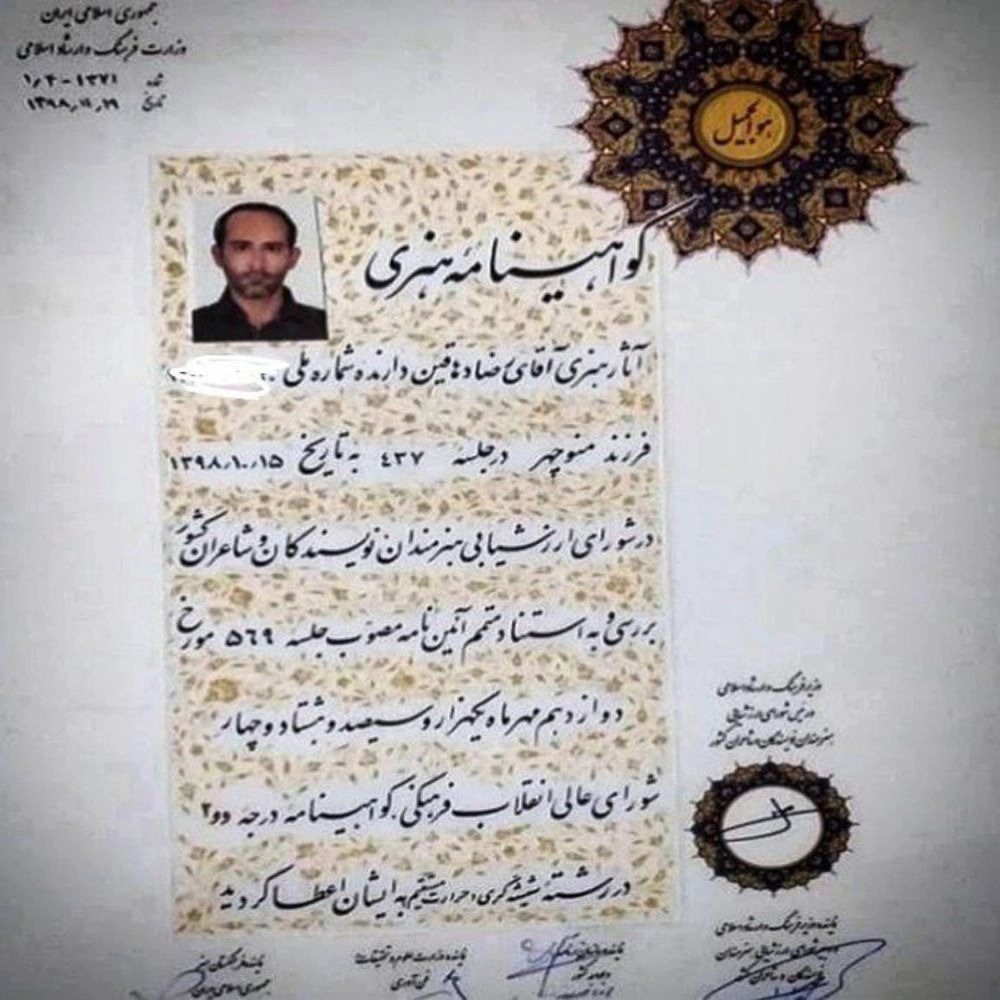 جمهوری اسلامی ایران
وزارت فرهنگ وارشاد اسلامی
۱٫۴-۱۳۷۱
تاریخ ۱۳۹۸٫۱۲٫۱۹
هوالجمیل
گواهینامه هنری
آثار هنری آقای رضا دهاقین دارنده شماره ملی
فرزند منوچهر درجلسه ۴۳۷ به تاریخ ۱۳۹۸٫۱۰٫۱۵
درشورای ارزشیابی هنرمندان نویسندگان و شاعران کشور
بررسی و به استناد متمم آئین نامه مصوب جلسه ۵۶۹ مورخ
دوازدهم مهرماه یکهزار و سیصد و هشتاد و چهار
شورای عالی انقلاب فرهنگی گواهینامه درجه دو۲
در رشته شیشه گری، حرارت مستقیم به ایشان اعطا گردید
وزیر فرهنگ وارشاد اسلامی
ورئیس شورای ارزشیابی
هنرمندان نویسندگان وشاعران کشور
نماینده وزیر فرهنگ وارشاد اسلامی
شورای ارزشیابی هنرمندان
نویسندگان و شاعران کشور
نماینده وزارت علوم و تحقیقات
فن آوری
نماینده فرهنگستان هنر
جمهوری اسلامی ایران